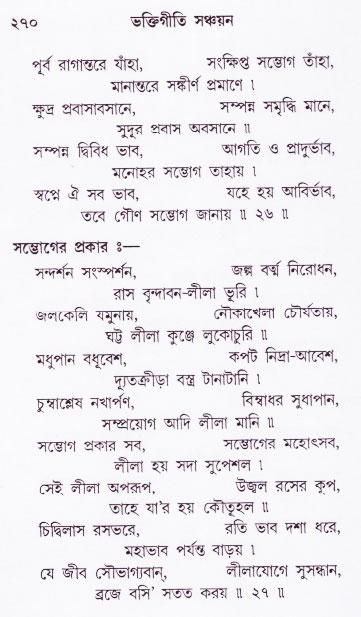 ২৭০ ভক্তিগীতি সঞ্চয়ন
পূর্ব রাগান্তরে যাঁহা, সংক্ষিপ্ত সম্ভোগ তাঁহা,
মানান্তরে সঙ্কীর্ণ প্রমাণে ।
ক্ষুদ্র প্রবাসাবসানে, সম্পন্ন সমৃদ্ধি মানে,
সুদূর প্রবাস অবসানে ॥
সম্পন্ন দ্বিবিধ ভাব, আগতি ও প্রাদুর্ভাব,
মনোহর সম্ভোগ তাহায় ।
স্বপ্নে ঐ সব ভাব, যহে হয় আবির্ভাব,
তবে গৌণ সম্ভোগ জানায় ॥ ২৬ ॥
সম্ভোগের প্রকার ঃ—
সন্দর্শন সংস্পর্শন, জল্প বর্ত্ম নিরোধন,
রাস বৃন্দাবন-লীলা ভূরি ।
জলকেলি যমুনায়, নৌকাখেলা চৌর্যতায়,
ঘট্ট লীলা কুঞ্জে লুকোচুরি ॥
মধুপান বধূবেশ, কপট নিদ্রা-আবেশ,
দ্যূতক্রীড়া বস্ত্র টানাটানি ।
চুম্বাশ্লেষ নখার্পণ, বিম্বাধর সুধাপান,
সম্প্রয়োগ আদি লীলা মানি ॥
সম্ভোগ প্রকার সব, সম্ভোগের মহোৎসব,
লীলা হয় সদা সুপেশল ।
সেই লীলা অপরূপ, উজ্বল রসের কূপ,
তাহে যা'র হয় কৌতূহল ॥
চিদ্বিলাস রসভরে, রতি ভাব দশা ধরে,
মহাভাব পর্যন্ত বাড়য় ।
যে জীব সৌভাগ্যবান্, লীলাযোগে সুসন্ধান,
ব্রজে বসি' সতত করয় ॥ ২৭ ॥